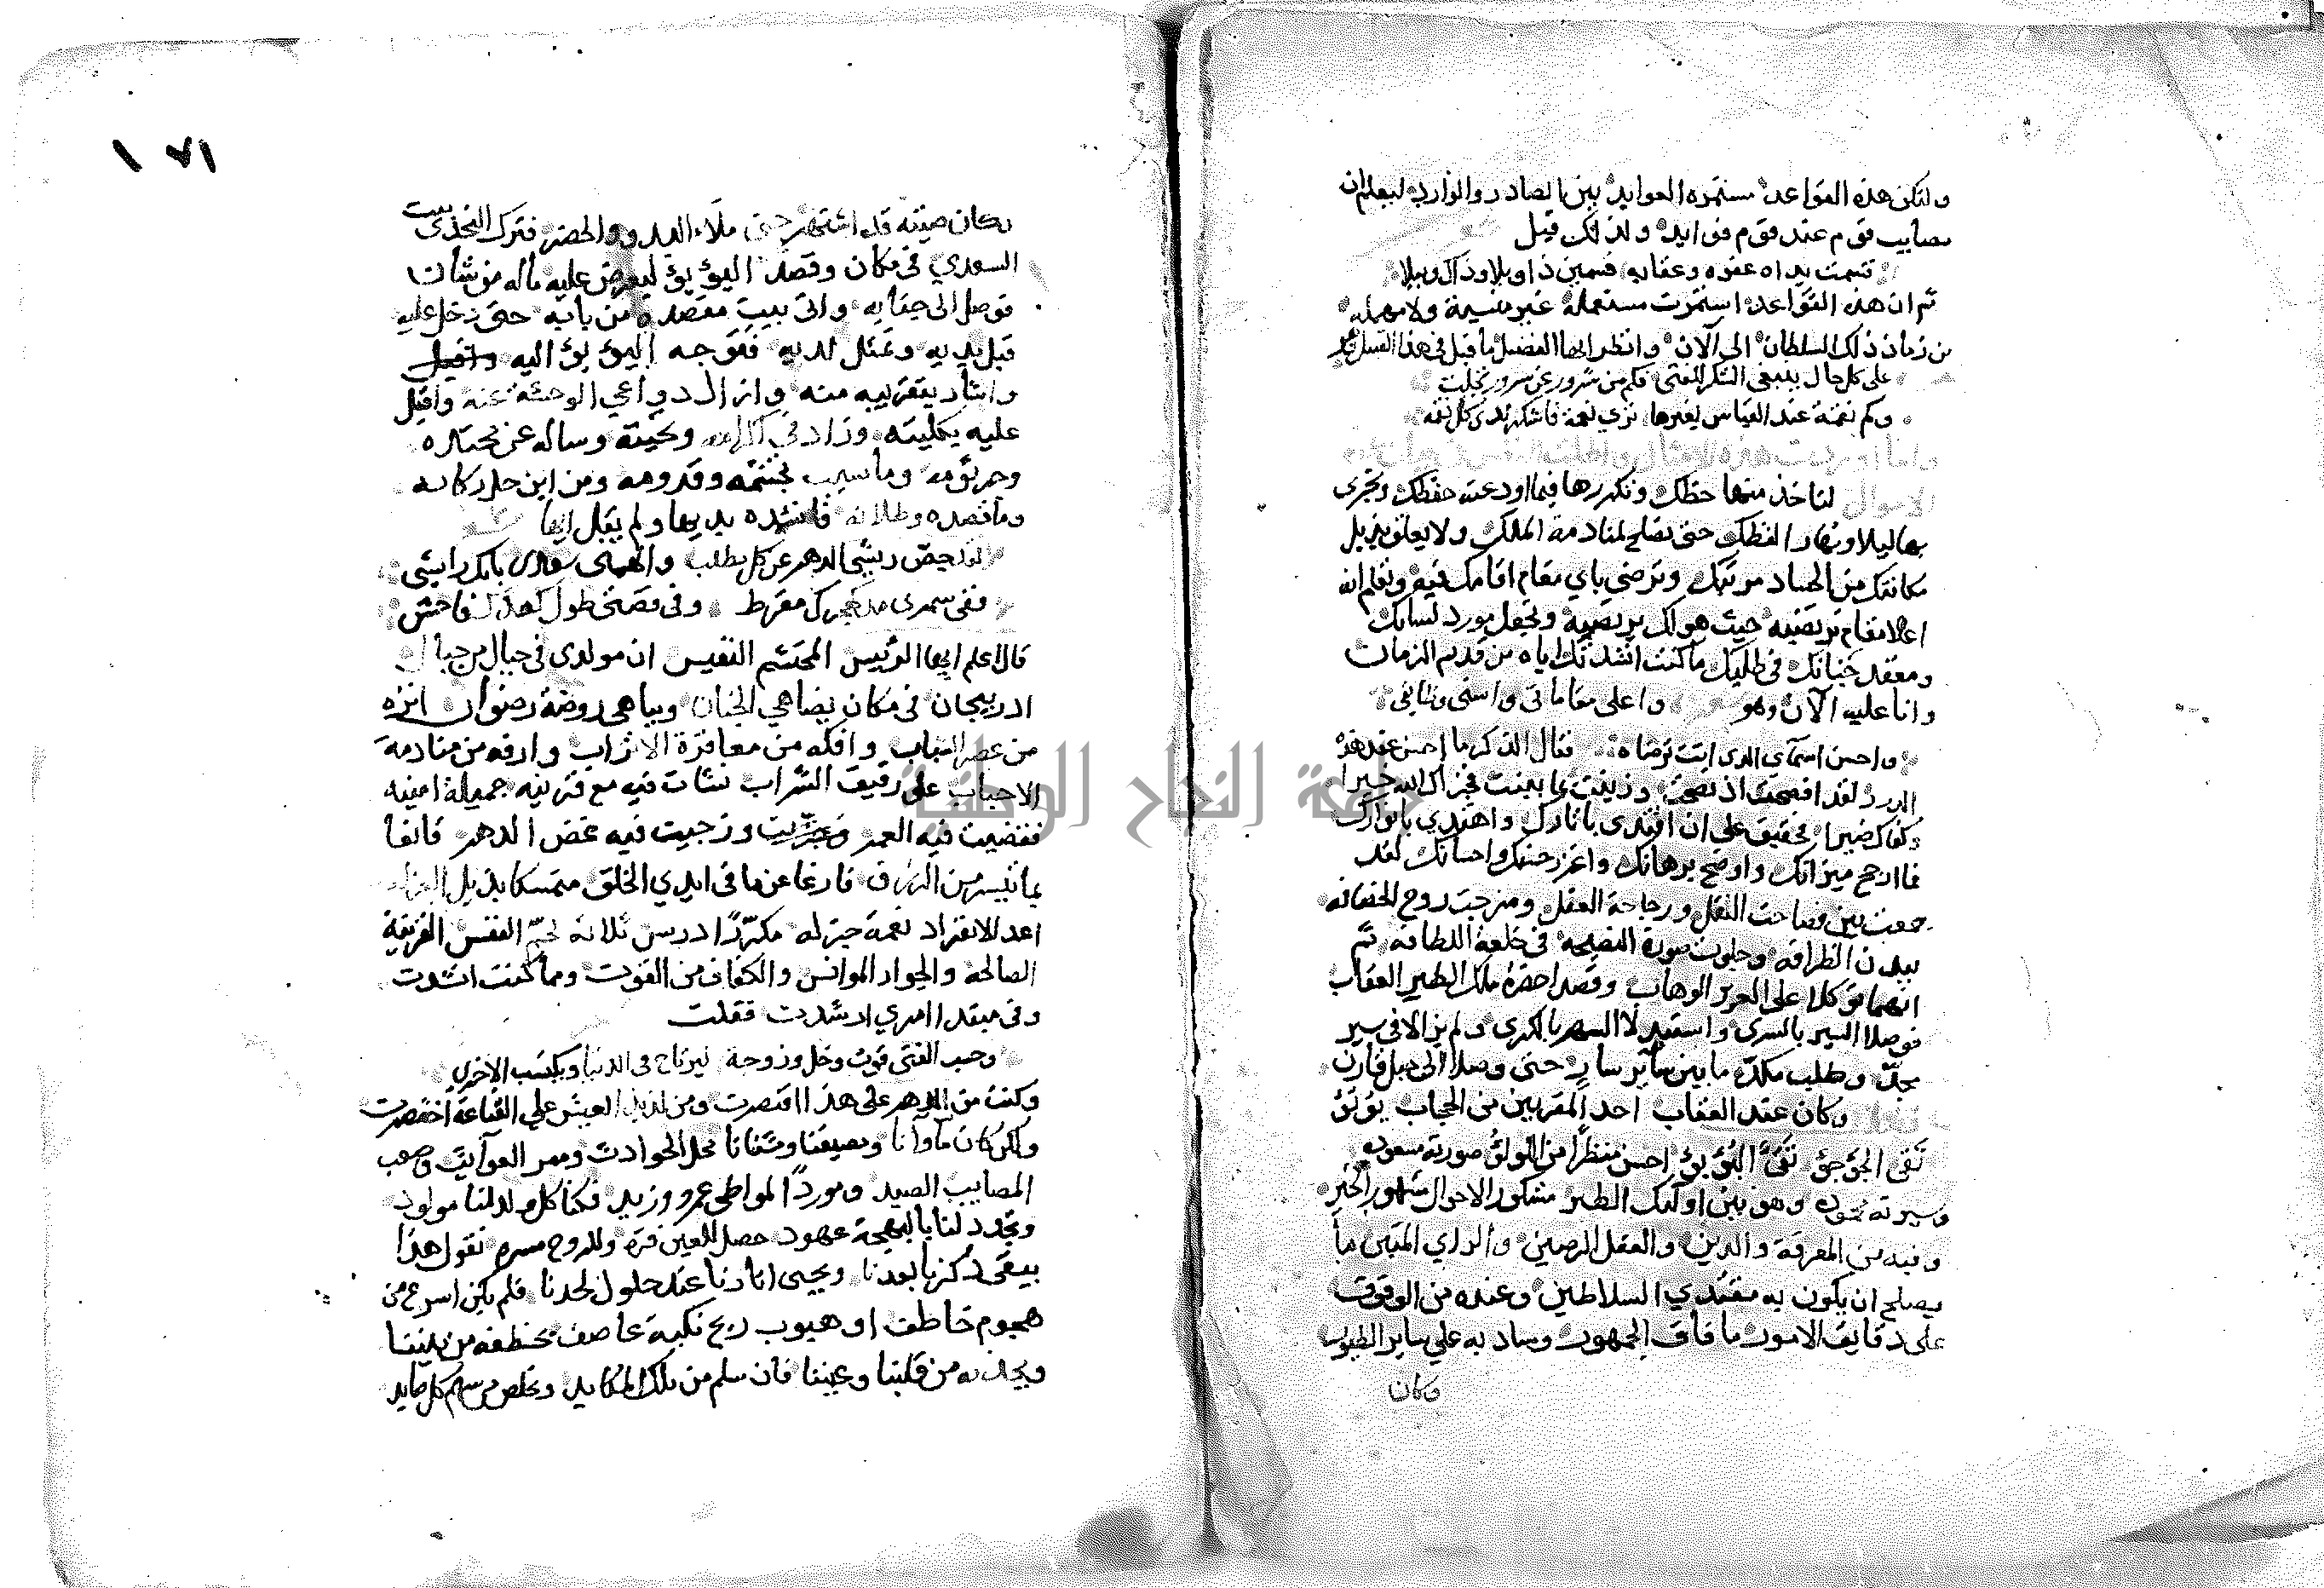 ولتكن هذه القواعد مستمرة العوايد بين الصادر والوارد ليعلم ان
مصايب قوم عند قوم فوايد ولذلك قيل
قسمت يداه عفوه وعقابه قسمين ذا وبلا وذاك وبيلا
ثم ان هذه القواعد استمرت مستعملة غير منسية ولا مهملة
من زمان ذلك السلطان الى الآن وانظر ايها الفضيل ما قيل في هذا القبيل
على كل حال ينبغي الشكر للفتى فكم من شرور عن سرور تجلت
وكم نقمة عند القياس بغيرها ترى نعمة فاشكر لدى كل نقمة
وانما اوردت هذه الامثال
لتاخذ منها حظك وتكررها فيما اودعته حفظك وتجرى
بها ليلا ونهارا لفظك حتى تصلح لمنادمة الملك ولا يعلق بذيل
مكانتك من الحساد مرتبك وترضي باي مقام اقامك فيه وتعلم انه
اعلا مقام ترتضيه حيث هو لك يرتضيه وتجعل مورد لسانك
ومعقد جنانك في طلبك ما كنت انشدتك اياه من قديم الزمان
وانا عليه الآن وهو واعلى مقاماتي واسنى وظايفي
واحسن اسمآي الذي انت ترضاه فقال الذكر ما احسن عقد هذه
الدرر لقد افصحت اذ نصحت وزينت بما بينت فجزاك الله خيرا
وكفاك ضيرا فحقيق علي ان اقتدى باثارك واهتدي بانوارك
فما ارجح ميزانك واوضح برهانك واغزر حسنك واحسانك لقد
جمعت بين فصاحت النقل ورجاحة العقل ومزجت روح الحصانه
ببدن الظرافة وجلوت صورة النصيحة في خلعة اللطافة ثم
انهما توكلا على العزيز الوهاب وقصدا حضرة ملك الطير العقاب
فوصلا السير بالسرى واستبدلا السهر بالكرى ولم يزالا في سير
مجد وطلب مكد ما بين ساير سار حتى وصلا الى جبل قارن
وكان عند العقاب احد المقربين من الحجاب يؤيؤ
نقي الجؤجؤ نقي البؤبؤ احسن منظرا من اللولؤ صورته مسعوده
وسيرته محموده وهو بين اولئك الطير مشكور الاحوال مشهور الخير
وفيه من المعرفة والدين والعقل الرصين والراي المتين ما
يصلح ان يكون به مقتدي السلاطين وعنده من الوقوف
على دقايق الامور ما فاق الجمهور وساد به علي ساير الطيور
وكان
وكان صيته قد اشتهر حتى ملاء البدو والحضر فترك النجدي بيت
السعدي في مكان وقصد اليؤيؤ ليعرض عليه ماله من شان
فوصل الى جنابه واتى بيت مقصده من بابه حتى دخل عليه
قبل يديه وتمثل لديه فتوجه اليؤيؤ اليه واقبل
واشار بتقريبه منه وازال دواعي الوحشة عنه واقبل
عليه بكليته وزاد في اكرامه وتحيته وساله عن محتده
وجرثومه وما سبب تجشمه وقدومه ومن اين حل ركابه
وما قصده وطلابه فانشده بديها ولم يقل ايها
لقد حص ريشي الدهر عن كل مطلب والهمني سعدى بانك رايشي
ففي سمرى مد كهجرك مفرط وفي قصتى طول كعدلك فاحش
قال اعلم ايها الرئيس المحتشم النفيس ان مولدى في جبال من جبال
ادربيجان في مكان يضاهي الجنان ويباهى روضة رضوان انزه
من عصر الشباب وافكه من معاقرة الاتراب وارفه من منادمة
الاحباب على رقيق الشراب نشات فيه مع قرينه جميلة امينه
فقضيت فيه العمر وزجيت فيه غض الدهر قانعا
بما تيسر من الرزق فارغا عن ما في ايدي الخلق متمسكا بذيل العزله
اعد الانفراد نعمة جزله مكررا درس ثلاثة تحيي النفس الغريقة
الصالحة والجوار الموانس والكفاف من القوت ومما كنت انشدت
وفي مبتدا امري ارشدت فقلت
وحسب الفتى قوت وخل وزوجة ليرتاح في الدنيا ويكتسب الاخرى
وكنت من الدهر على هذا اقتصرت ومن لذيذ العيش علي القناعة اختصرت
ولكن كان ماوآنا ومصيفنا ومشتانا محل الحوادث وممر العوآيث وصعب
المصايب الصيد وموردا لمواطى عمرو وزيد فكنا كل ما ولد لنا مولود
وتجدد لنا بالبهجة عهود حصل للعين قرة وللروح مسرة نقول هذا
يبقى ذكرنا بعدنا ويحيى اثارنا عند حلول لحدنا فلم يكن اسرع من
هجوم خاطف او هبوب ريح نكبة عاصف تخطفه من بيننا
ويجذبه من قلبنا وعيننا فان سلم من تلك المكايد وتخلص من سهم كل صايد
١٧١
جامعة النجاح الوطنية